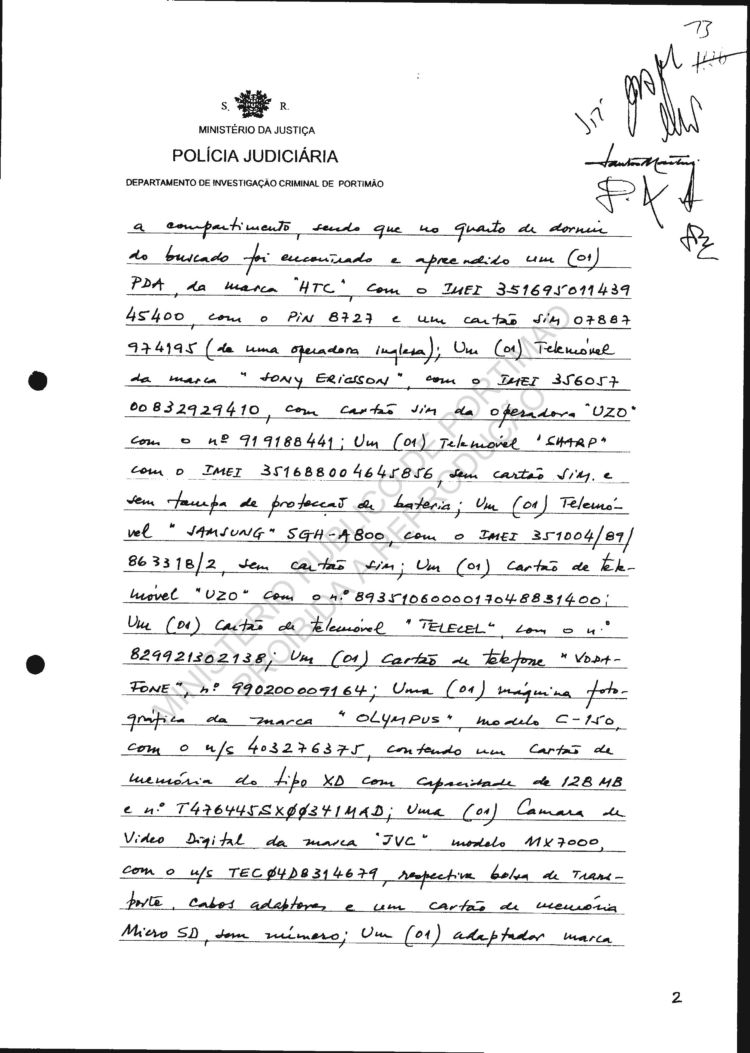 73
S. R.
MINISTÉRIO DA JUSTIÇA
POLÍCIA JUDICIÁRIA
DEPARTAMENTO DE INVESTIGAÇÃO CRIMINAL DE PORTIMÃO
a compartimento, sendo que no quarto de dormir
do buscado foi encontrado e apreendido um (01)
PDA, da marca "HTC", com o IMEI 351695011439
45400, com o PIN 8727 e um cartão SIM 07887
974195 (de uma operadora inglesa); Um (01) Telemóvel
da marca "SONY ERICSSON", com o IMEI 356057
00832929410, com cartão sim da operadora "UZO"
com o nº 919188441; Um (01) Telemóvel "SHARP"
com o IMEI 351688004645856, sem cartão SIM. e
sem tampa de protecção de bateria; Um (01) Telemó-
vel "SAMSUNG" SGH-A800, com o IMEI 351004/89/
863318/2, sem cartão sim; Um (01) Cartão de tele-
móvel "UZO" com o n.º 8935106000017048831400;
Um (01) Cartão de telemóvel "TELECEL", com o n.º
829921302138; Um (01) Cartão de telefone "VODA-
FONE", nº 990200009164; Uma (01) máquina foto-
gráfica da marca "OLYMPUS", modelo C-150,
com o n/s 403276375, contendo um Cartão de
memória do tipo XD com capacidade de 128 MB
e n.º T476445SXØØ341MAD; Uma (01) Camara de
Video Digital da marca "JVC" modelo MX7000,
com o n/s TECØ4D8314679, respectiva bolsa de Trans-
porte, Cabos adaptores e um cartão de memória
Micro SD, sem número; Um (01) adaptador marca
MINISTÉRIO PÚBLICO DE PORTIMÃO
PROIBIDA A REPRODUÇÃO
2